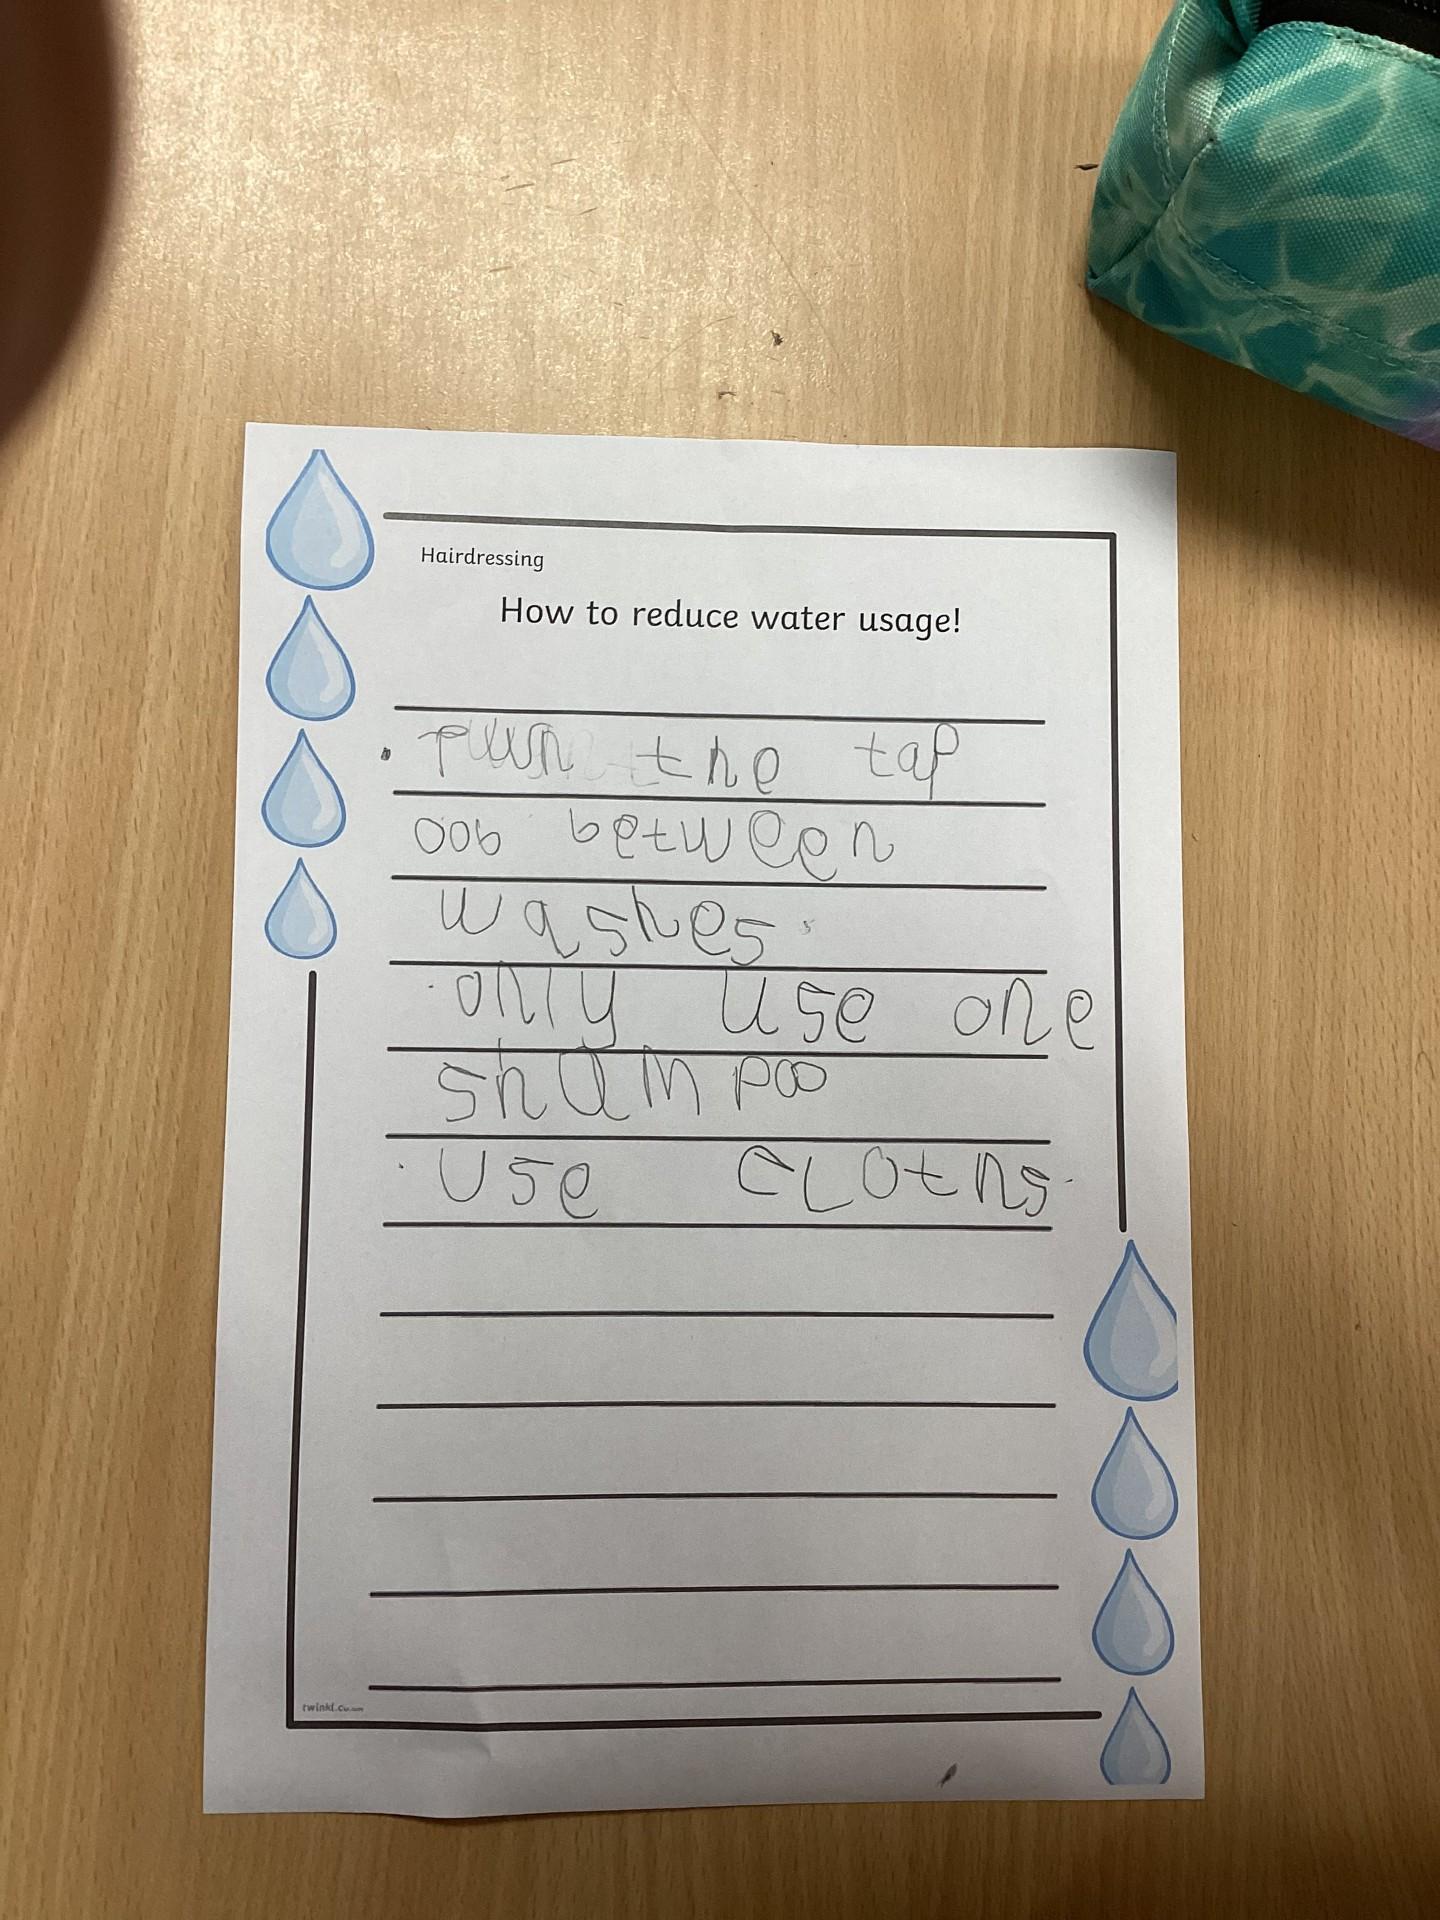 Hairdressing
How to reduce water usage!
· the tap
oob between
washes.
· only use one
shampoo
· use cLoths.